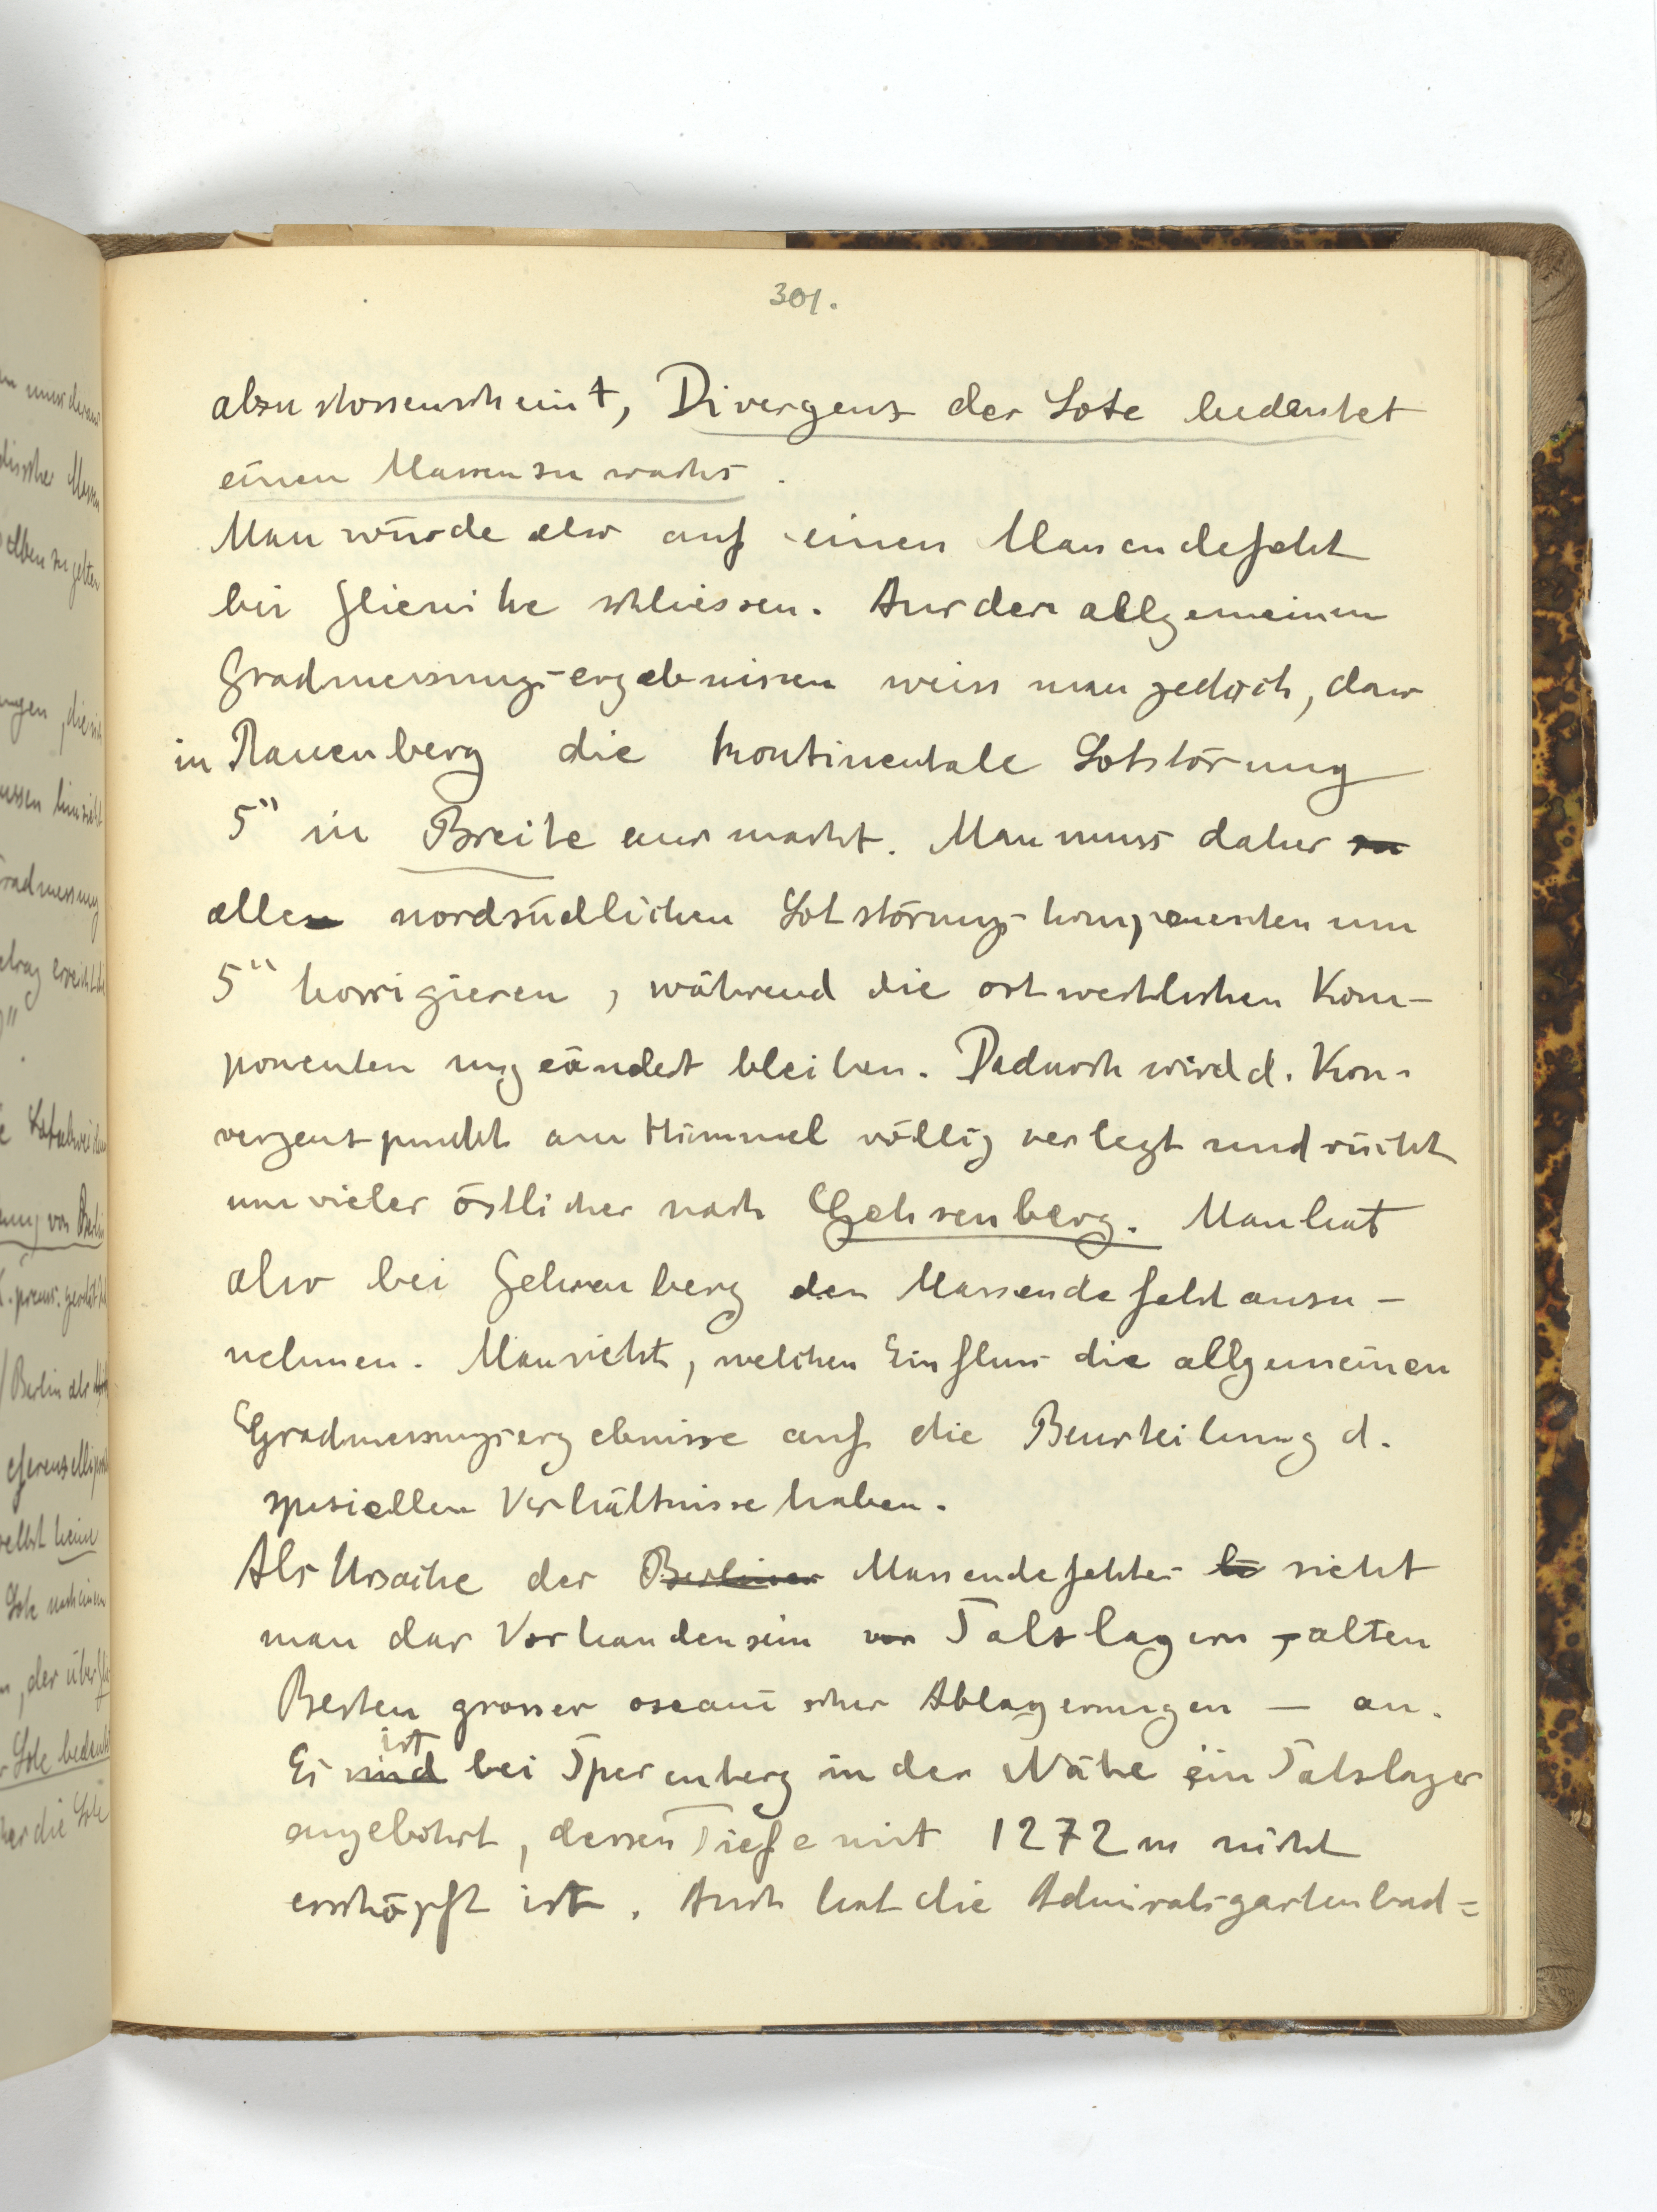 301.
abzustossen scheint, Divergenz der Lote bedeutet
einen Massenzuwachs.
Man würde also auf einen Massendefekt
bei Glienike schliessen. Aus den allgemeinen
Gradmessungs-ergebnissen weiss man jedoch, dass
in Rauenberg die kontinentale Lotstörung
5" in Breite ausmacht. Man muss daher zu
alle nordsüdlichen Lotstörungs-komponenten um
5" korrigieren, während die ostwestlichen Kom-
ponenten ungeändert bleiben. Dadurch wird d. Kon-
vergenzpunkt am Himmel völlig verlegt und rückt
um vieles östlicher nach Gehsenberg. Man hat
also bei Gehsenberg den Massendefekt anzu-
nehmen. Man sieht, welchen Einfluss die allgemeinen
Gradmessungsergebnisse auf die Beurteilung d.
speziellen Verhältnisse haben.
Als Ursache des Berliner Massendefektes sieht
man das Vorhandensein von Salzlagern, alten
Resten grosser ozeanischer Ablagerungen — an.
ist
Es sind bei Sperenberg in der Nähe ein Salzlager
angebohrt, dessen Tiefe mit 1272 m nicht
erschöpft ist. Auch hat die Admiralsgartenbad=
muss daraus
disscher Massen
elben zu gelten
ungen, die sich
Gradmessung
etrag erreicht
ung von Berlin
Berlin als
selbst keine
Lote nach einem
n, der über
r Lote bedeutet
her die Lote